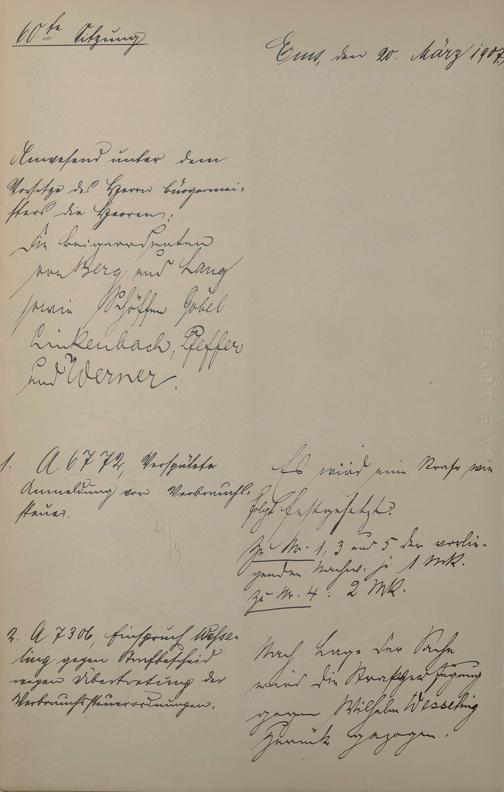 60te Sitzung.
Ems, den 20. März 1907,
Anwesend unter dem
Vorsitze des Herrn Bürgermei-
sters die Herren:
Die Beigeordneten
von Berg und Lang
sowie Schöffen Göbel
Linkenbach, Pfeffer
und Werner.
1. A 6772, Verspätete
Anmeldung von Verbrauchs-
steuer.
Es wird eine Strafe wie
folgt festgesetzt:
Zu Nr. 1, 3 und 5 der vorlie-
genden Nachw. je 1 Mk.
Zu Nr. 4: 2 Mk.
2. A 7306, Einspruch Wesse-
ling gegen Strafbescheid
wegen Übertretung der
Verbrauchssteuerordnungen.
Nach Lage der Sache
wird die Strafverfügung
gegen Wilhelm Wesseling
zurück gezogen.